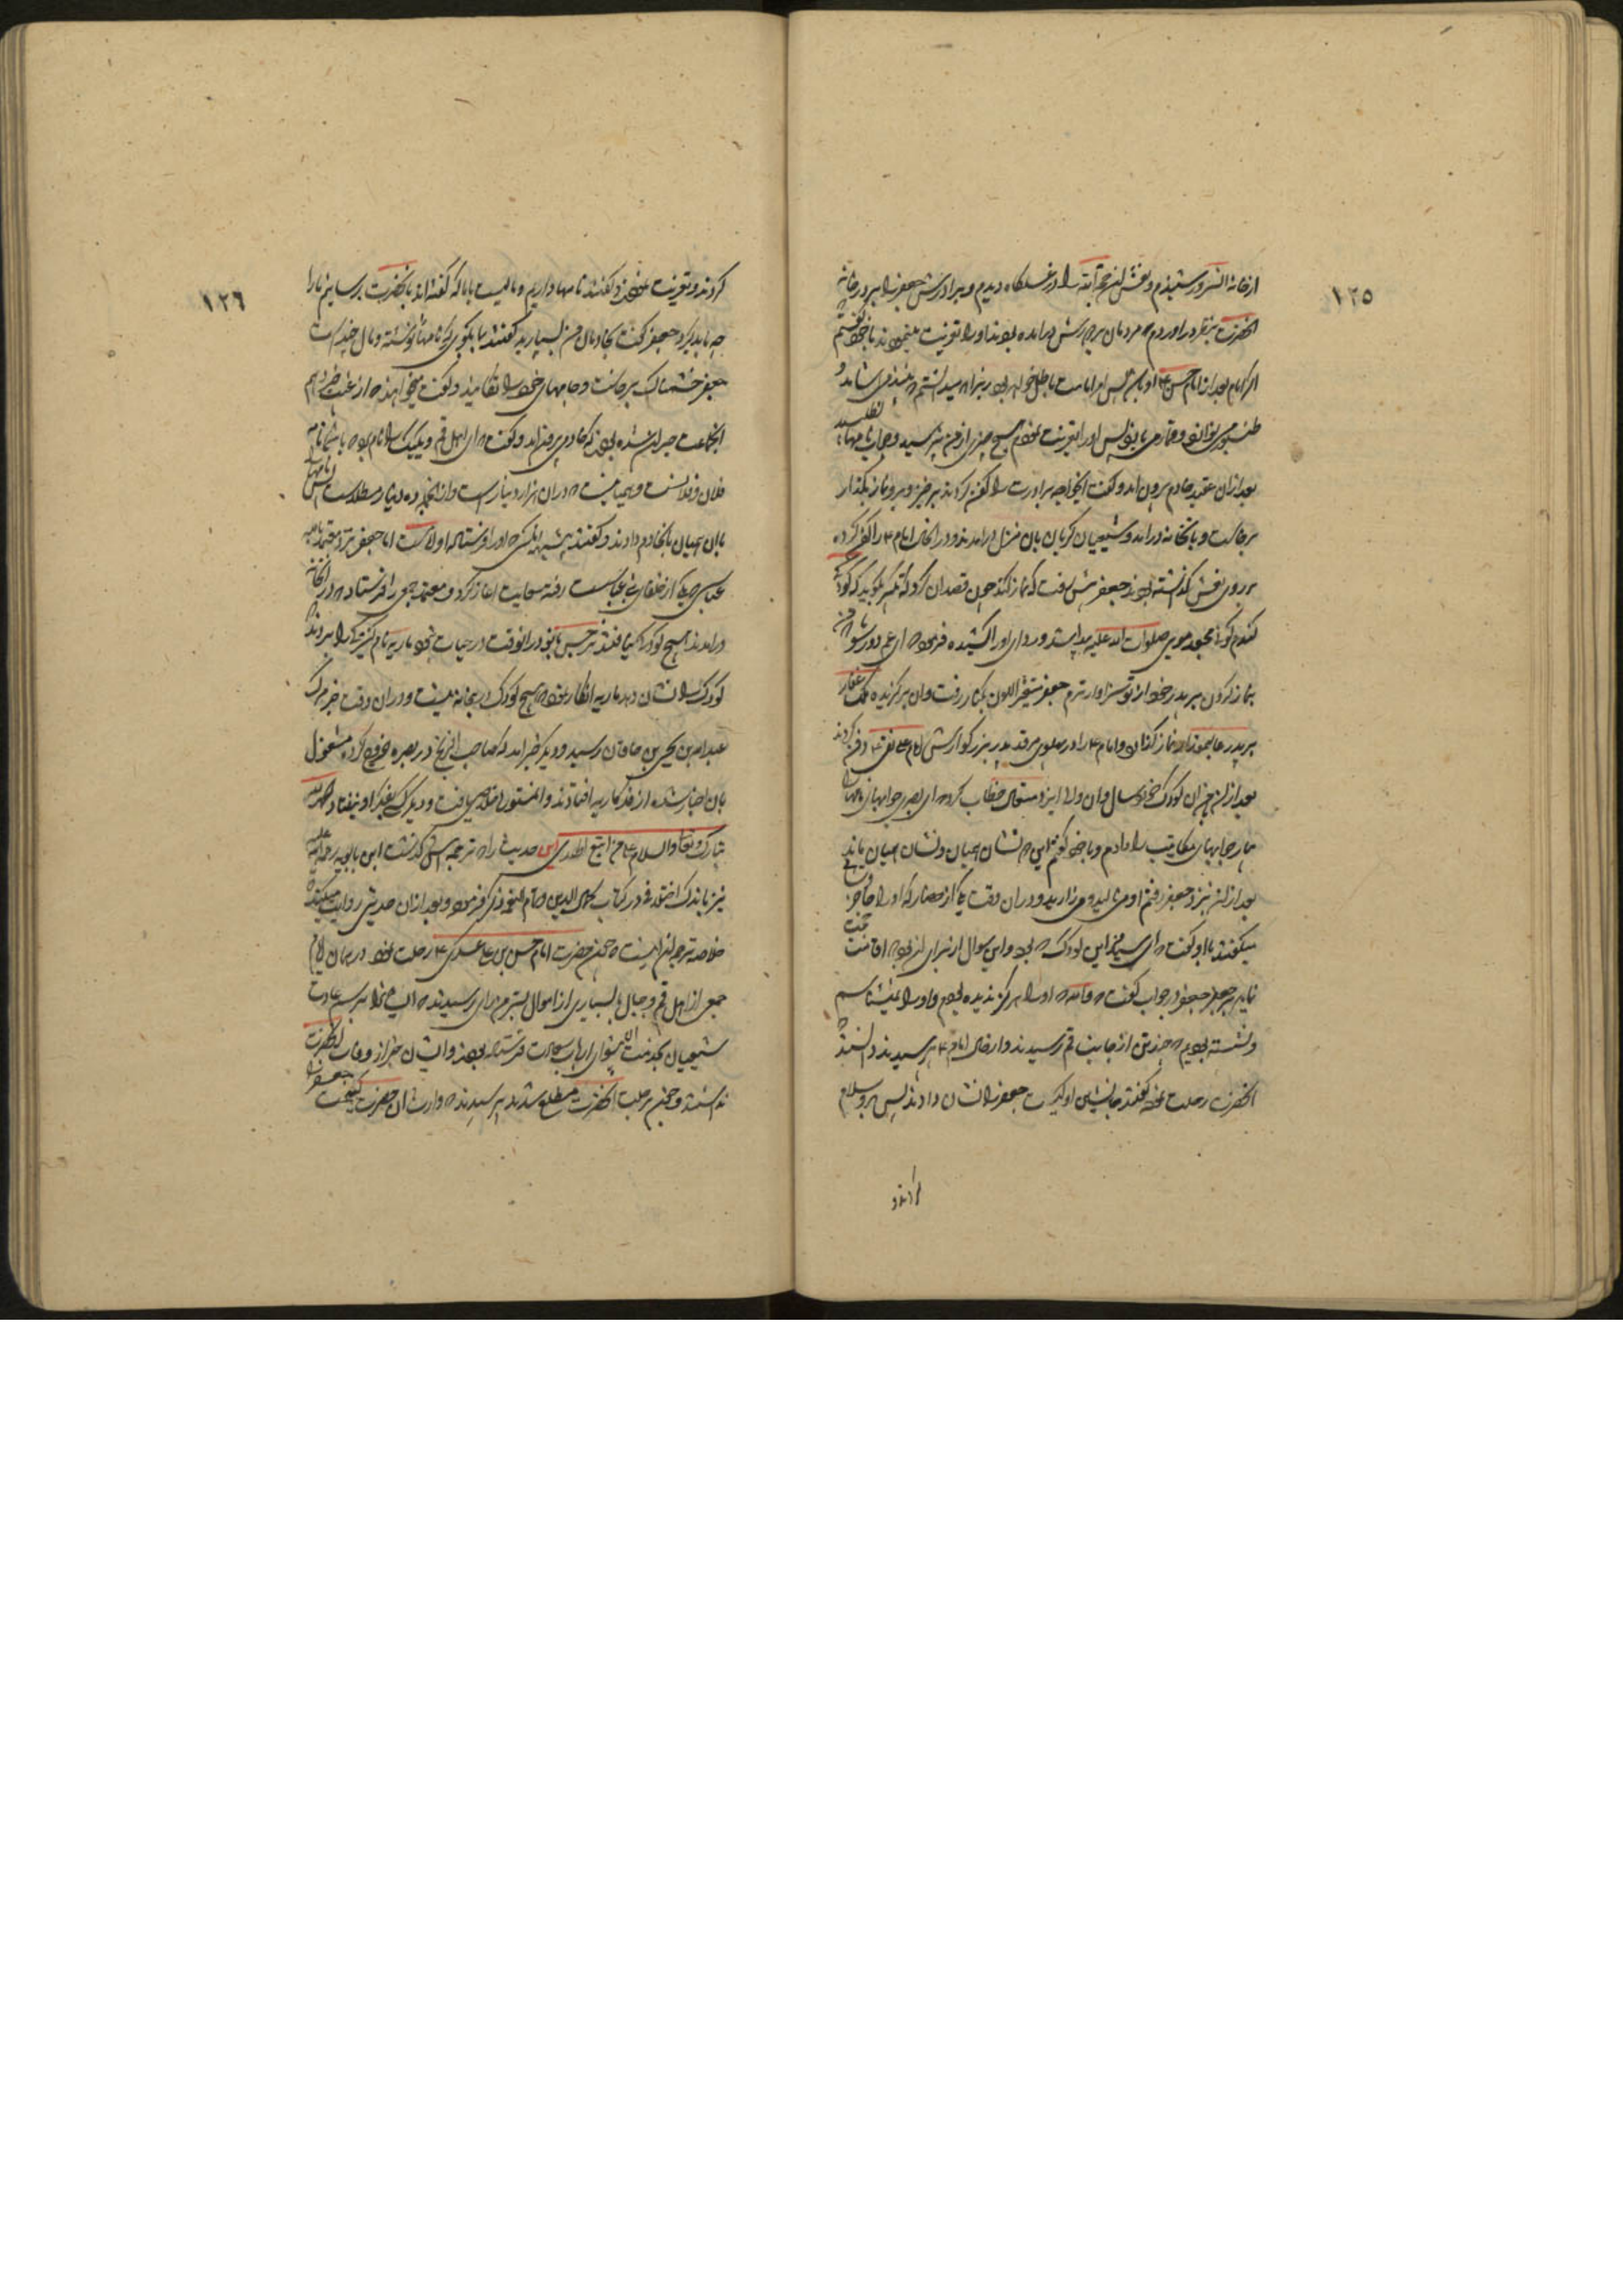 ١٢٥
از خانه السرور شنیدم و نعش آن حجة الله را در غسلگاه دیدم و برادرش جعفر را بر در خانه
انحضرت بنظر در آوردم که مردمان بر دورش در آمده بودند و او را تعزیت مینمودند با خود گفتم
اگر امام بعد از امام حسن ۴ او باشد پس امر امامت باطل خواهد بود زیرا که میدانستم که نبیذ می آشامد و
طنبور می نوازد و قمار می بازد پس او را تعزیت نمودم هیچ چیز از من نپرسید و جواب نامها
نطلبید
بعد از آن عقید خادم برون آمد و گفت ایخواجه برادرت را کفن کردند برخیز و برو نماز بگذار
برخاست و بانخانه درآمد و شیعیان گریان بان منزل درآمدند و در انحال امام ۴ را کفن کرده
بر روی نعش گذاشته بودند جعفر پیش رفت که نماز کند چون قصد ان کرد که تکبیر بگوید که کودک
گندم گون مجعد موی صلوات الله علیه پیدا شد و ردای او را کشیده فرمود که ای عم دور شو که من
بنماز کردن بر پدر خود از تو سزاوارترم جعفر متغیر اللون بکنار رفت و ان برگزیده ملک غفار
بر پدر عالیمقدار نماز گذارد و امام ۴ را در پهلوی مرقد پدر بزرگوارش امام علی نقی ۴ دفن کردند
بعد از ان ان کودک خورد سال و ان والا ایزد متعال خطاب کرد که ای بصری جوابهای نامها را
بیار جوابهای مکاتیب را دادم و با خود گفتم این دو نشان همیان و نشان همیان ماند
بعد از ان نزد جعفر رفتم او می نالید و می زارید و در ان وقت یکی از حضار که او را حاجز وشا
میگفتند با او گفت که ای سید من این کودک که بود و این سوال از برای ان بود که اقامت حجت
نماید بر جعفر جعفر در جواب گفت که والله که او را هرگز ندیده بودم و او را نمیشناسم
و نشسته بودیم که چند تن از جانب قم رسیدند و از حال امام ۴ پرسیدند دانستند که
انحضرت رحلت نموده گفتند جانشین او کیست جعفر را نشان دادند پس برو سلام
کردند و
١٢٦
کردند و تعزیت نمودند و گفتند نامها داریم و مالیست با ما که گفته اند بانحضرت برسانیم ما را
چه باید کرد جعفر گفت بخادمان من بسپارید گفتند بما بگوی که نامها را که نوشته و مال چند است
جعفر خشمناک برخاست و جامهای خود را تکانید و گفت میخواهند که از غیب خبر دهیم
انجماعت حیران شده بودند که خادمی بیرون آمد و گفت که ای اهل قم و یکیک را نام بود با شما نامه
فلان و فلانست و همیانیست که در ان هزار دینار است و از انجمله ده دینار مطلاست پس نامها
با ان همیان بانخادم دادند و گفتند بیشبهه انکس که او را فرستاده او است اما جعفر نزد معتمد
عباسی که یکی از خلفای بنی عباس است رفته سعایت آغاز کرد و معتمد جمعی را فرستاد که در انخانه
درآمدند هیچ کودک را نیافتند نرجس خاتون در انوقت در حیات نبود ماریه نام کنیزک را بردند که
کودک را نشان دهد ماریه انکار نمود که هیچ کودک در خانه نیست و در ان وقت خبر مرگ
عبدالله بن یحیی بن خاقان رسید و دیگر خبر آمد که صاحب الزنج در بصره خروج کرده مشغول
بان اخبار شده از فکر ماریه افتادند و ان مستوره خلاصی یافت و دیگر کسی بفکر او نیفتاد الحمد لله
تبارک و تعالی والسلام علی من اتبع الهدی این حدیث را که ترجمه اش گذشت ابن بابویه رحمة الله علیه
نیز باندک اختلافی در کتاب کمال الدین و تمام النعمه ذکر فرموده و بعد از ان حدیثی روایت میکند که
خلاصه ترجمه ان اینست که چون حضرت امام حسن بن علی عسکری ۴ رحلت نمود در همان ایام
جمعی از اهل قم و جبال با بسیاری از اموال بسرمن رای رسیدند که ایشان بنابر رسم عادت
شیعیان بخدمت ان پیشوای ارباب سعادت فرستاده بودند و ایشان خبر از وفات انحضرت
نداشتند و چون بر رحلت انحضرت مطلع شدند پرسیدند که وارث ان حضرت کیست جعفر را